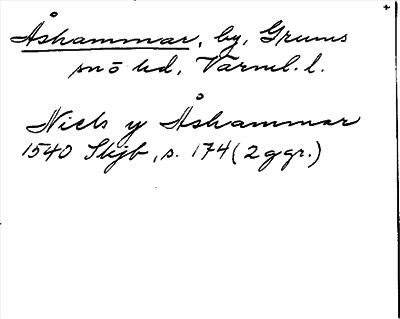 Åshammar, by, Grums
sn o hd, Värml. l.
Niels y Åshammar
1540 Skjb, s. 174 (2 ggr.)